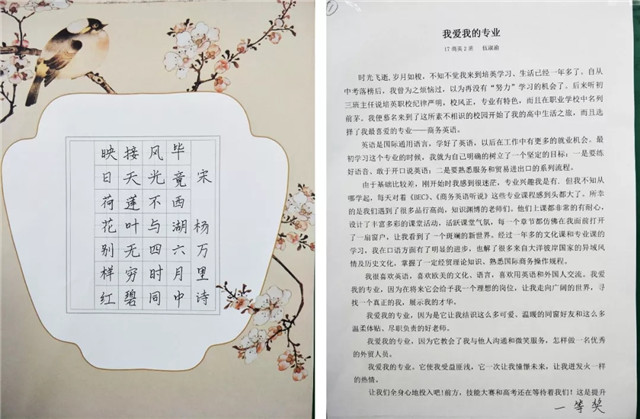 宋 杨万里诗
毕竟西湖六月中
风光不与四时同
接天莲叶无穷碧
映日荷花别样红
我爱我的专业
17 商英 2 班
时光飞逝，岁月如梭，不知不觉我来到培英学习、生活已经一年多了。自从
中考落榜后，我曾为之烦恼过，以为再没有“努力”学习的机会了。后来听初
三班主任说培英职校纪律严明，校风正，专业有特色，而且在职业学校中名列
前茅。我便慕名来到了这所素不相识的校园开始了我的高中生活之旅，而且选
择了我最喜爱的专业——商务英语。
英语是国际通用语言，学好了英语，以后在工作中有更多的就业机会。最
初学习这个专业的时候，我就为自己明确的树立了一个坚定的目标：一是要练
好语音、敢于开口说英语；二是要熟悉服务和贸易进出口的系列流程。
由于基础比较差，刚开始时我感到很迷茫，专业兴趣我是有. 但我不知从
哪学起，每天对着《BEC》、《商务英语听说》这些专业课程感到头都大了。所幸
的是我们遇到了很多品行高尚，知识渊博的老师们。他们上课都非常的有耐心，
设计了丰富多彩的课堂活动，活跃课堂气氛，每一个章节都仿佛在我面前打开
了一扇窗户，让我看到了一个斑斓的新世界。经过一年多的文化课和专业课的
学习，我在口语方面有了明显的进步，也解了很多来自大洋彼岸国家的异域风
情及历史文化，掌握了一定经贸理论知识，熟悉国际商务操作规程。
我很喜欢英语，喜欢欧美的文化、语言，喜欢用英语和外国人交流。我爱
我的专业，因为在将来它会给予我一个理想的岗位，让我走向广阔的世界，寻
找一个真正的我，展示我的才华。
我爱我的专业，因为是它让我结识这么多可爱、温暖的同窗好友和这么多
温柔体贴、尽职负责的好老师。
我爱我的专业，因为它教会了我与他人沟通和微笑服务，怎样做一名优秀
的外贸人员。
我爱我的专业，它使我受益匪浅，它一次让我憧憬未来，让我迸发火一样
的热情。
让我们全身心地投入吧！前方，技能大赛和高考还在等待着我们！这是提升
一等奖